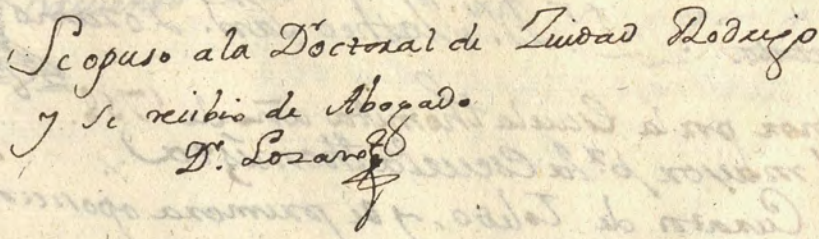 Se opuso ala Doctoral de Zuidad Rodrigo
y se recibio de Abogado
Dr. Lozano